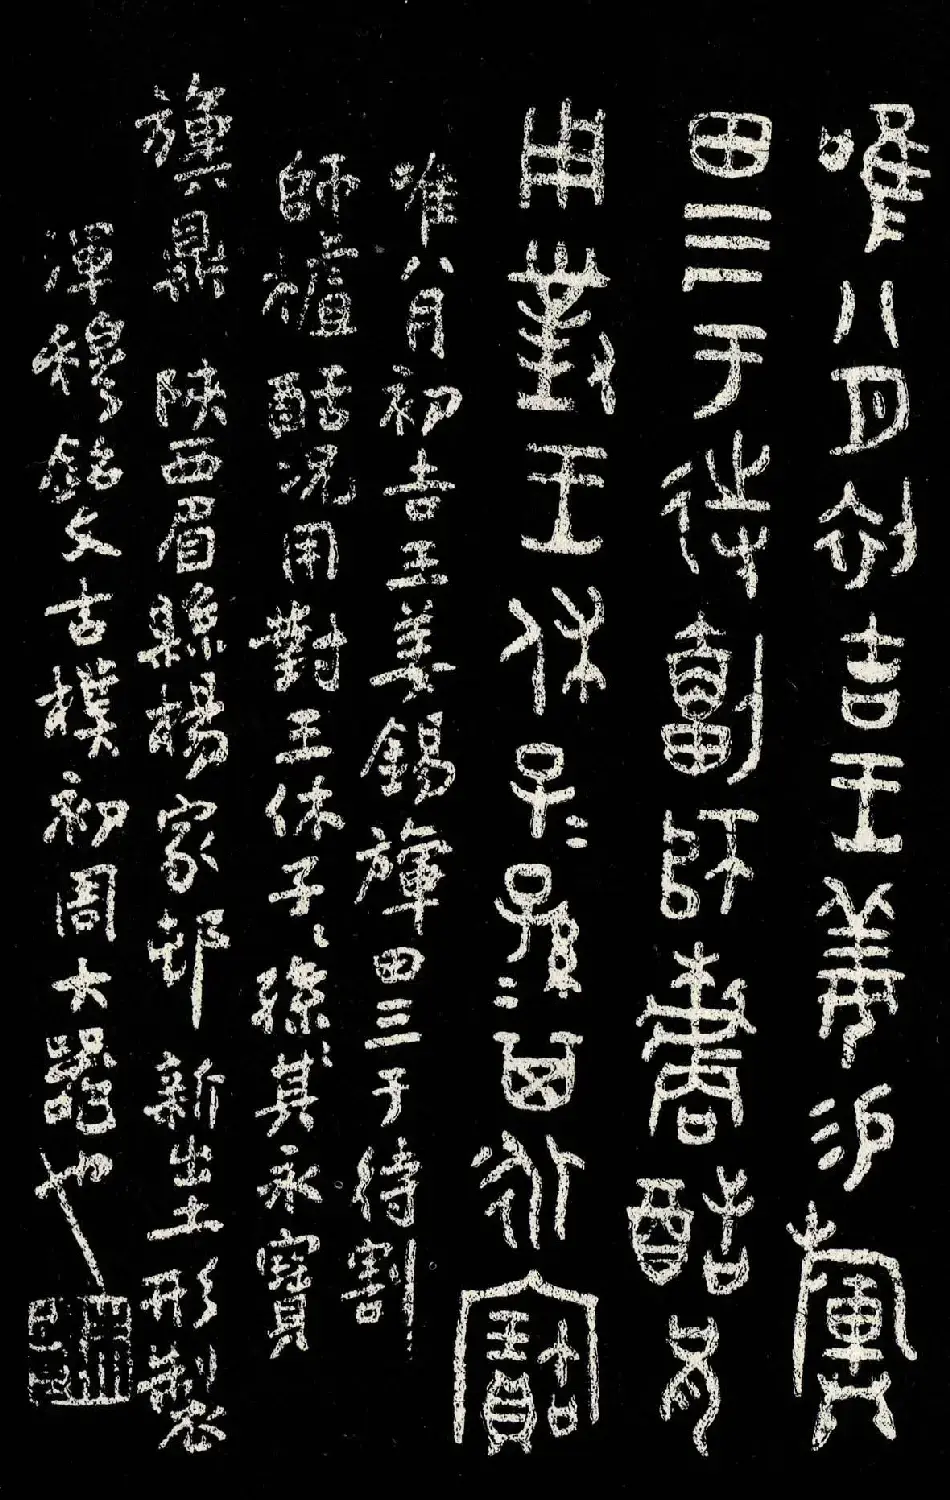 唯八月初吉王姜易
田三于待劃師櫨酷兄
用對王休子〻孫〻其永寶
唯八月初吉王姜錫田三于待割
師櫨酷況用對王休子〻孫〻其永寶
旗鼎 陝西眉縣楊家邨 新出土形製
渾穆銘文古樸初周大器也